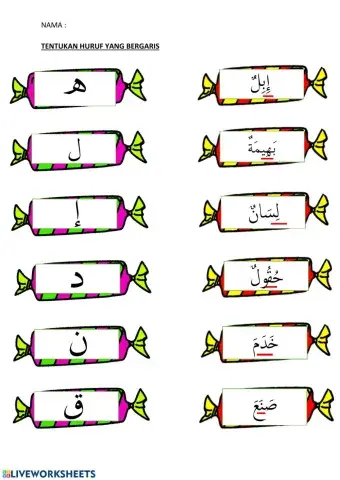 NAMA :
TENTUKAN HURUF YANG BERGARIS
ه
إِبِلٌ
ل
بَهِيمَةٌ
إ
لِسَانٌ
د
حُقُولٌ
ن
خَدَمَ
ق
صَنَعَ
LIVEWORKSHEETS